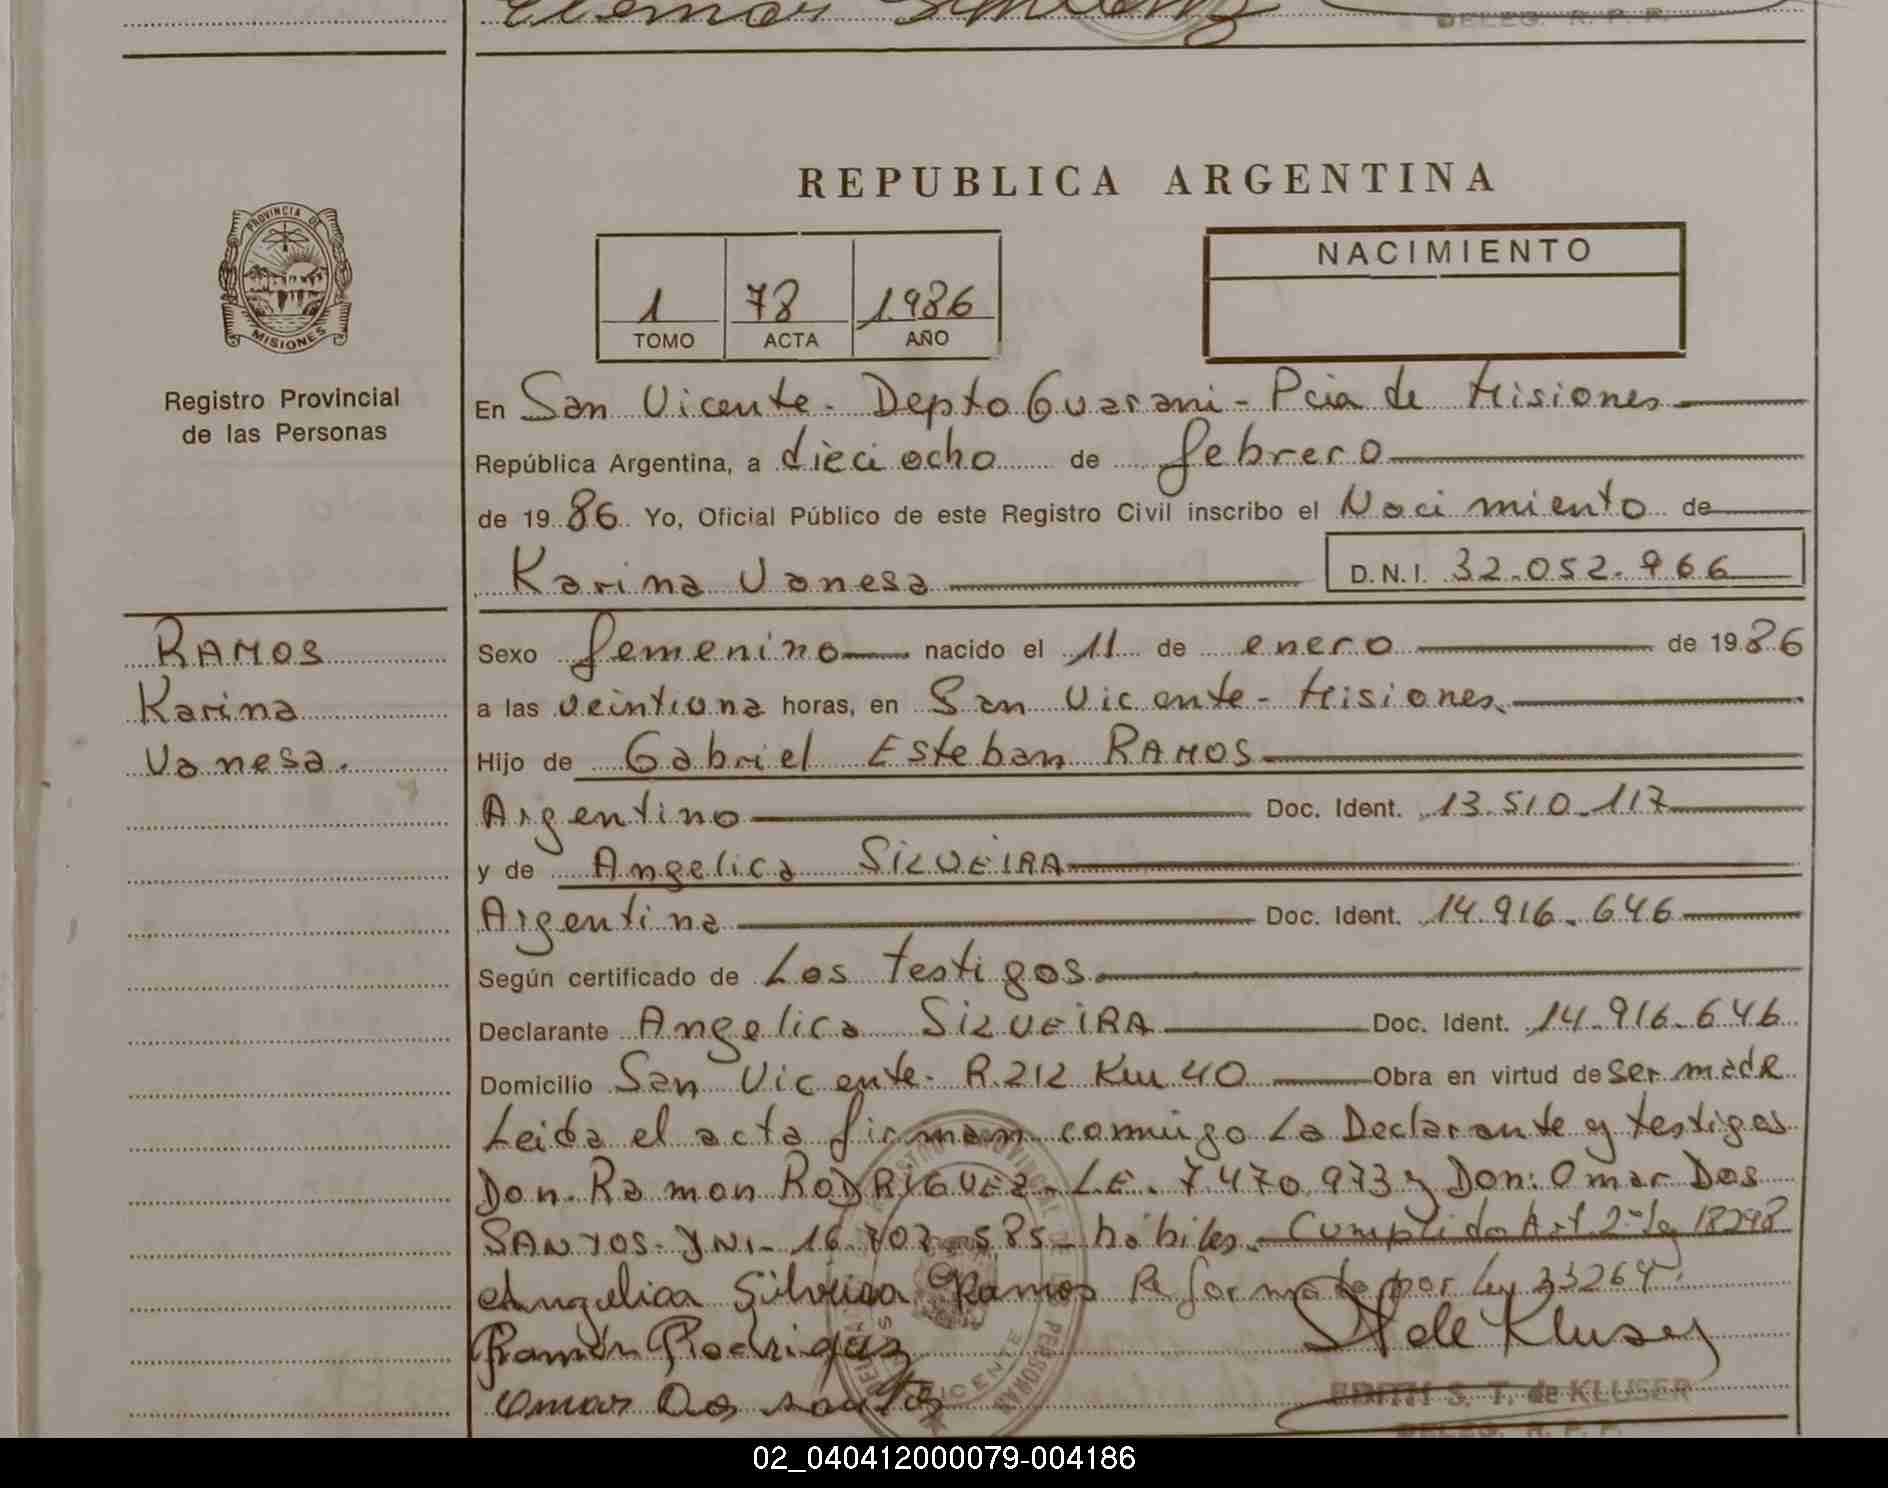 DELEG. R. P. P.
REPUBLICA ARGENTINA
PROVINCIA DE
MISIONES
NACIMIENTO
1 78 1986
TOMO ACTA AÑO
Registro Provincial
de las Personas
En San Vicente - Depto Guarani - Pcia de Misiones
República Argentina, a dieciocho de febrero
de 1986 Yo, Oficial Público de este Registro Civil inscribo el Nacimiento de
Karina Vanesa D.N.I. 32.052.966
RAMOS
Karina
Vanesa.
Sexo femenino nacido el 11 de enero de 1986
a las veintiuna horas, en San Vicente - Misiones.
Hijo de Gabriel Esteban RAMOS
Argentino Doc. Ident. 13.510.117
y de Angelica SILVEIRA
Argentina Doc. Ident. 14.916.646
Según certificado de Los testigos
Declarante Angelica SILVEIRA Doc. Ident. 14.916.646
Domicilio San Vicente - R.212 Km 40 Obra en virtud de ser madre
Leida el acta firman conmigo La Declarante y testigos
Don. Ramon RODRIGUEZ - L.E. 7.470.973 y Don: Omar Dos
SANTOS - DNI - 16.702.585 - hábiles. Cumplido Art 2º Ley 18248
Angelica Silveira Ramos Reformado por Ley 23264
Ramón Rodriguez
Omar Dos santos
S T de Kluser
EDITH S. T. de KLUSER
DELEG. R. P. P.
02_040412000079-004186